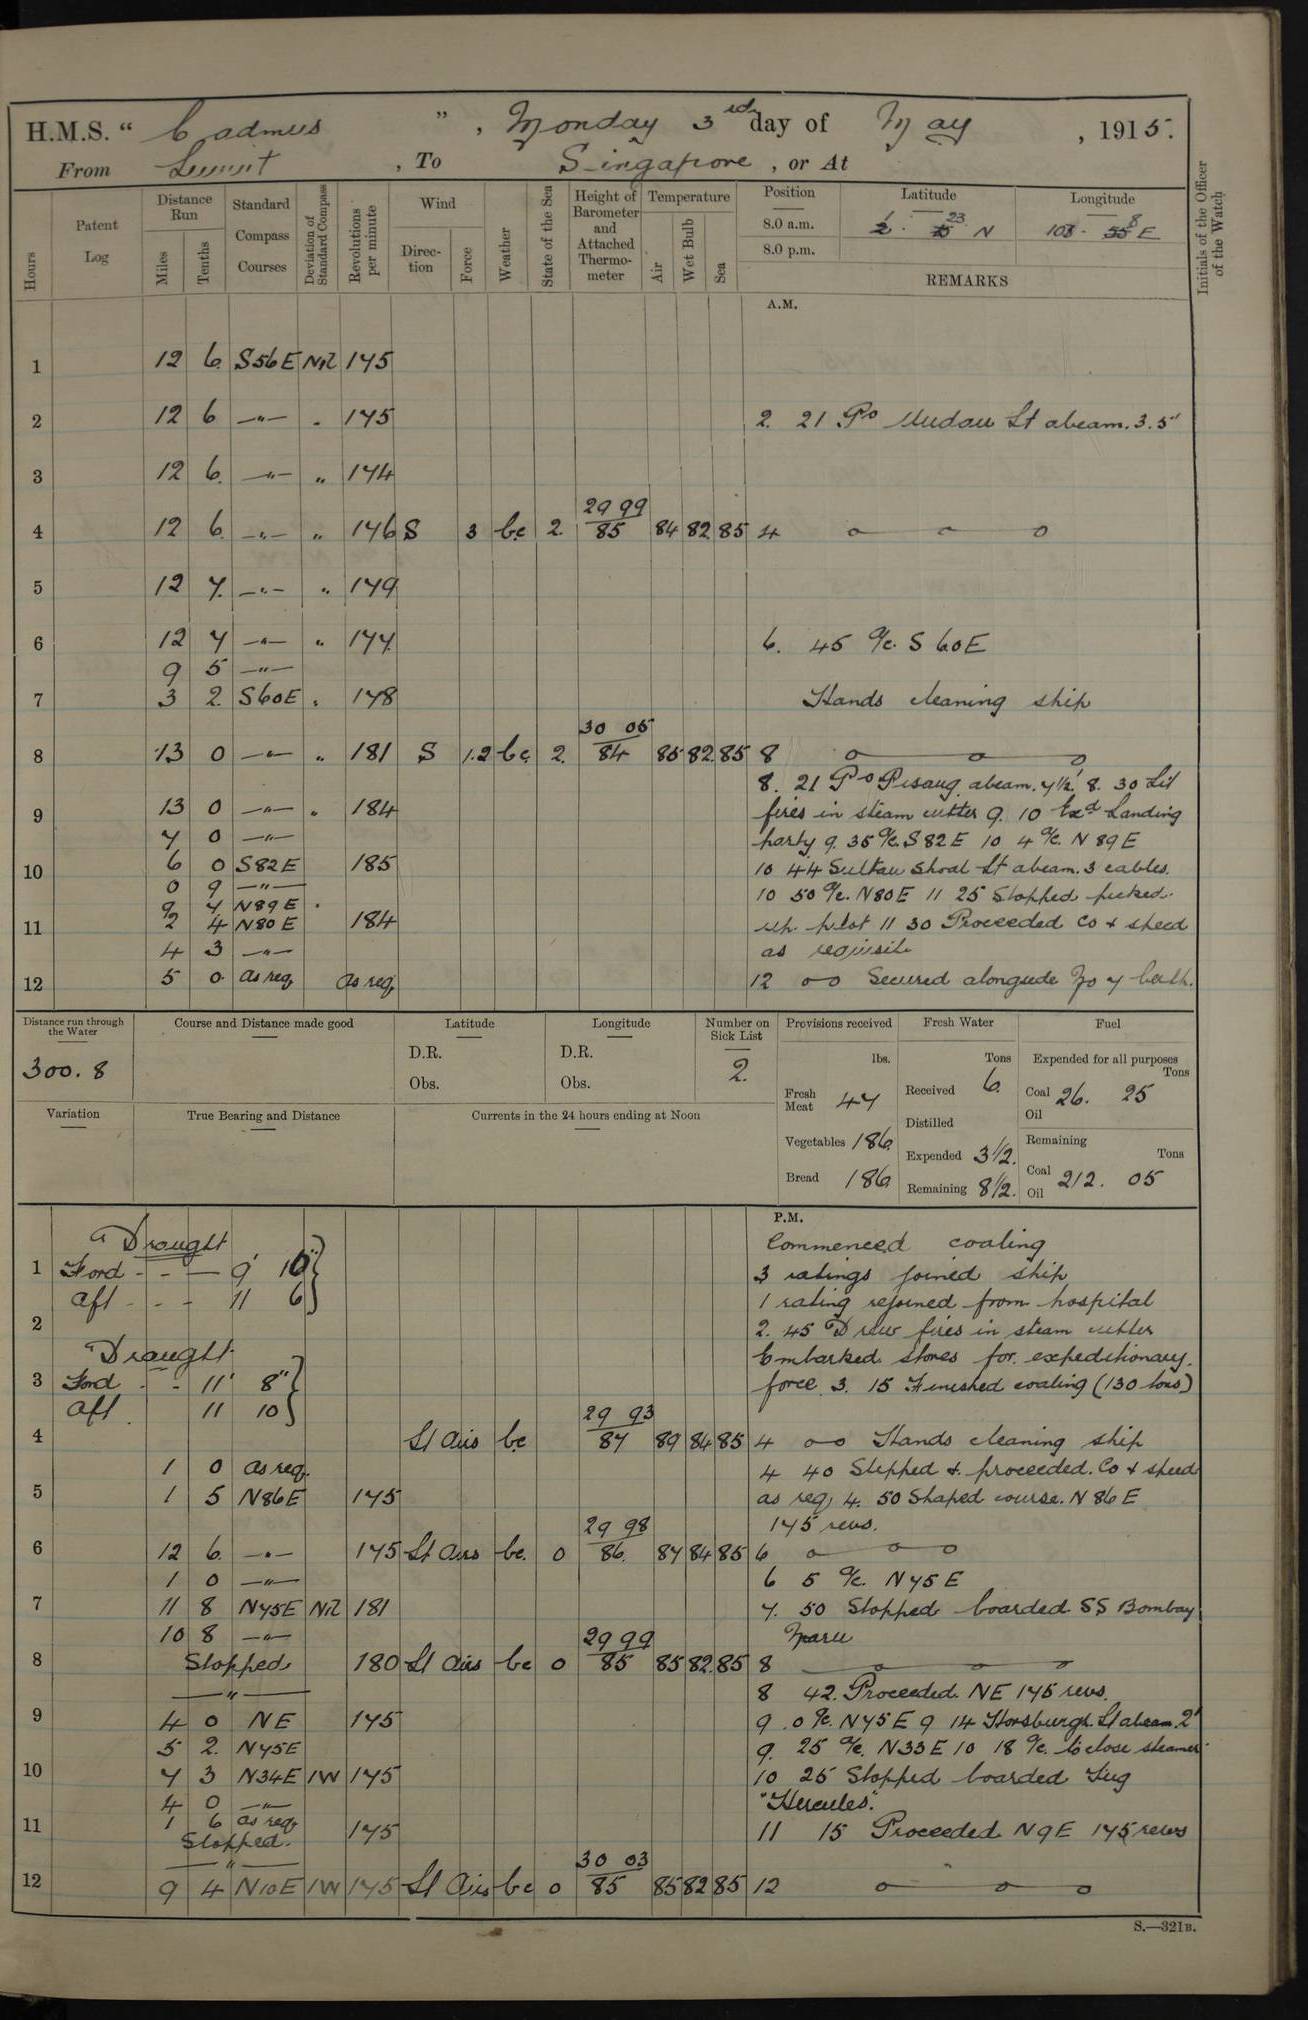 H.M.S. “ Cadmus ” , Monday 3rd day of May , 1915.
From Lumut , To Singapore , or At
Hours
Patent Log
Distance Run
Miles
Tenths
Standard Compass Courses
Deviation of Standard Compass
Revolutions per minute
Wind
Direction
Force
Weather
State of the Sea
Height of Barometer and Attached Thermometer
Temperature
Air
Wet Bulb
Sea
Position
8.0 a.m.
8.0 p.m.
Latitude
1 · 23 N
Longitude
103 · 8 E
REMARKS
Initials of the Officer of the Watch
A.M.
1 12 6 S56E Nil 145
2 12 6 —"— " 145 2. 21 Po Mudau Lt abeam. 3.5"
3 12 6 —"— " 144
29 99
4 12 6 —"— " 146 S 3 bc 2 85 84 82 85 4 o o o
5 12 7 —"— " 149
6 12 7 —"— " 147 6. 45 a/c. S 60E
9 5 —"—
7 3 2 S60E " 148 Hands cleaning ship
30 05
8 13 0 —"— " 181 S 1.2 bc 2 84 85 82 85 8 o o o
8. 21 Po Pisang abeam. 7½' 8. 30 Lit
9 13 0 —"— " 184 fires in steam cutter 9. 10 Exd Landing
7 0 —"— party 9. 35 a/c. S82E 10 4 a/c. N 89E
10 6 0 S82E 185 10 44 Sultan Shoal Lt abeam. 3 cables.
0 9 —"— 10 50 a/c. N80E 11 25 Stopped picked
9 4 N89E "
11 2 4 N80E 184 up pilot 11 30 Proceeded Co & speed
4 3 —"— as requisite
12 5 0 as req as req 12 oo Secured alongside No 7 berth.
Distance run through the Water
300. 8
Course and Distance made good
Latitude
D.R.
Obs.
Longitude
D.R.
Obs.
Number on Sick List
2.
Provisions received
lbs.
Fresh Meat 47
Vegetables 186
Bread 186
Fresh Water
Tons
Received 6
Distilled
Expended 3½.
Remaining 8½.
Fuel
Expended for all purposes
Tons
Coal 26. 25
Oil
Remaining
Tons
Coal 212. 05
Oil
Variation
True Bearing and Distance
Currents in the 24 hours ending at Noon
P.M.
Draught Commenced coaling
1 Ford - - — 9' 10" 3 ratings joined ship
aft - - - 11 6 1 rating rejoined from hospital
2 2. 45 Drew fires in steam cutter
Draught Embarked stores for expeditionary
3 Ford - - 11' 8" force 3. 15 Finished coaling (130 tons)
aft 11 10 29 93
4 Lt airs bc 87 89 84 85 4 oo Hands cleaning ship
1 0 as req. 4 40 Slipped & proceeded. Co & speed
5 1 5 N86E 145 as req 4. 50 Shaped course. N 86 E
29 98 145 revs.
6 12 6 —"— 145 Lt airs bc. 0 86 87 84 85 6 o o o
1 0 —"— 6 5 a/c. N75E
7 11 8 N75E Nil 181 7. 50 Stopped boarded SS Bombay
10 8 —"— 29 99 Maru
8 Stopped 180 Lt airs bc 0 85 85 82 85 8 o o o
—"— 8 42. Proceeded. NE 145 revs.
9 4 0 NE 145 9 .0 a/c. N75E 9 14 Horsburgh Lt abeam. 2'
5 2. N75E 9. 25 a/c. N33E 10 18 a/c. to close steamer
10 7 3 N34E 1W 145 10 25 Stopped boarded Tug
4 0 —"— "Hercules".
11 1 6 as req 145 11 15 Proceeded N9E 145 revs
Stopped.
—"— 30 03
12 9 4 N10E 1W 145 Lt Airs bc 0 85 85 82 85 12 o o o
S.—321B.